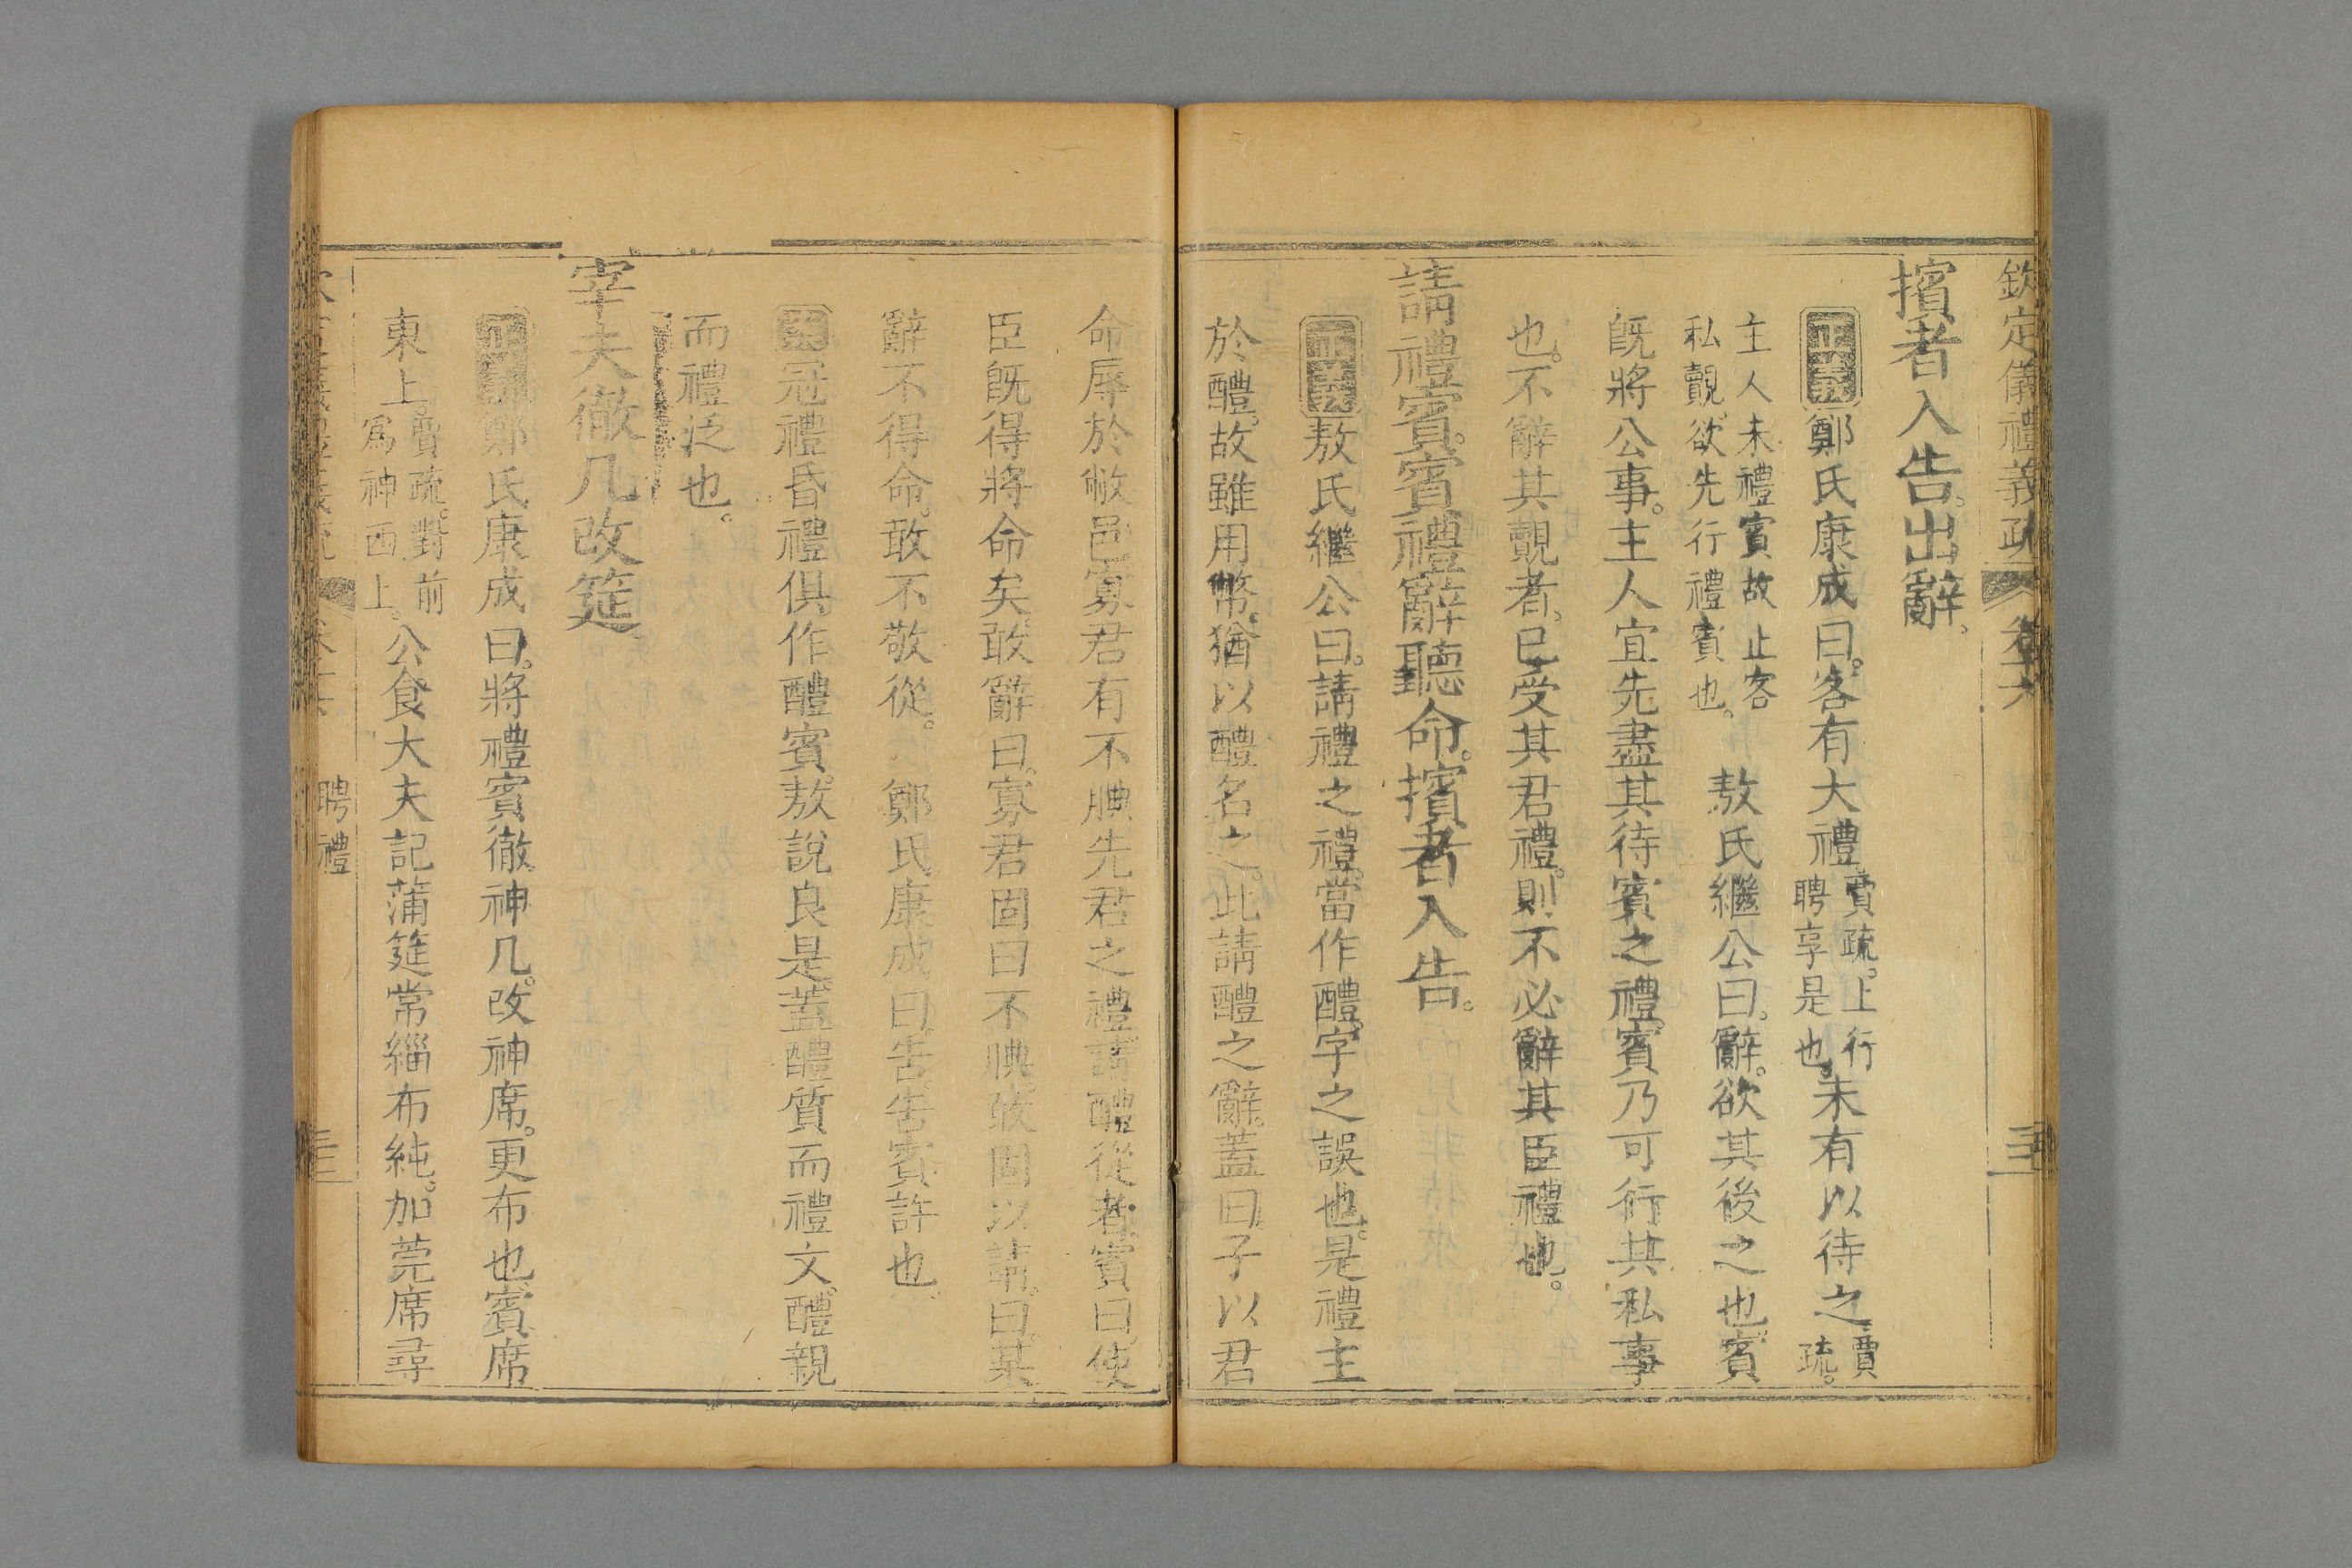 欽定儀禮義疏 卷十六
擯者入告。出辭。
正義 鄭氏康成曰。客有大禮。賈疏。上行聘享是也。未有以待之。賈疏。
主人未禮賓。故止客私覿。欲先行禮賓也。 敖氏繼公曰。辭。欲其後之也。賓
既將公事。主人宜先盡其待賓之禮。賓乃可行其私事
也。不辭其覿者。已受其君禮。則不必辭其臣禮也。
請禮賓。賓禮辭聽命。擯者入告。
正義 敖氏繼公曰。請禮之禮。當作醴。字之誤也。是禮主
於醴。故雖用幣。猶以醴名之。此請醴之辭。蓋曰。子以君
命辱於敝邑。寡君有不腆先君之禮。請醴從者。賓曰。使
臣既得將命矣。敢辭。曰。寡君固曰不腆。敢固以請。曰。某
辭不得命。敢不敬從。 鄭氏康成曰。告。告賓許也。
案 冠禮昏禮俱作醴賓。敖說良是。蓋醴質而禮文。醴親
而禮泛也。
宰夫徹几改筵
正義 鄭氏康成曰。將禮賓。徹神几。改神席。更布也。賓席
東上。賈疏。對前爲神西上。公食大夫記蒲筵常緇布純。加莞席尋
聘禮